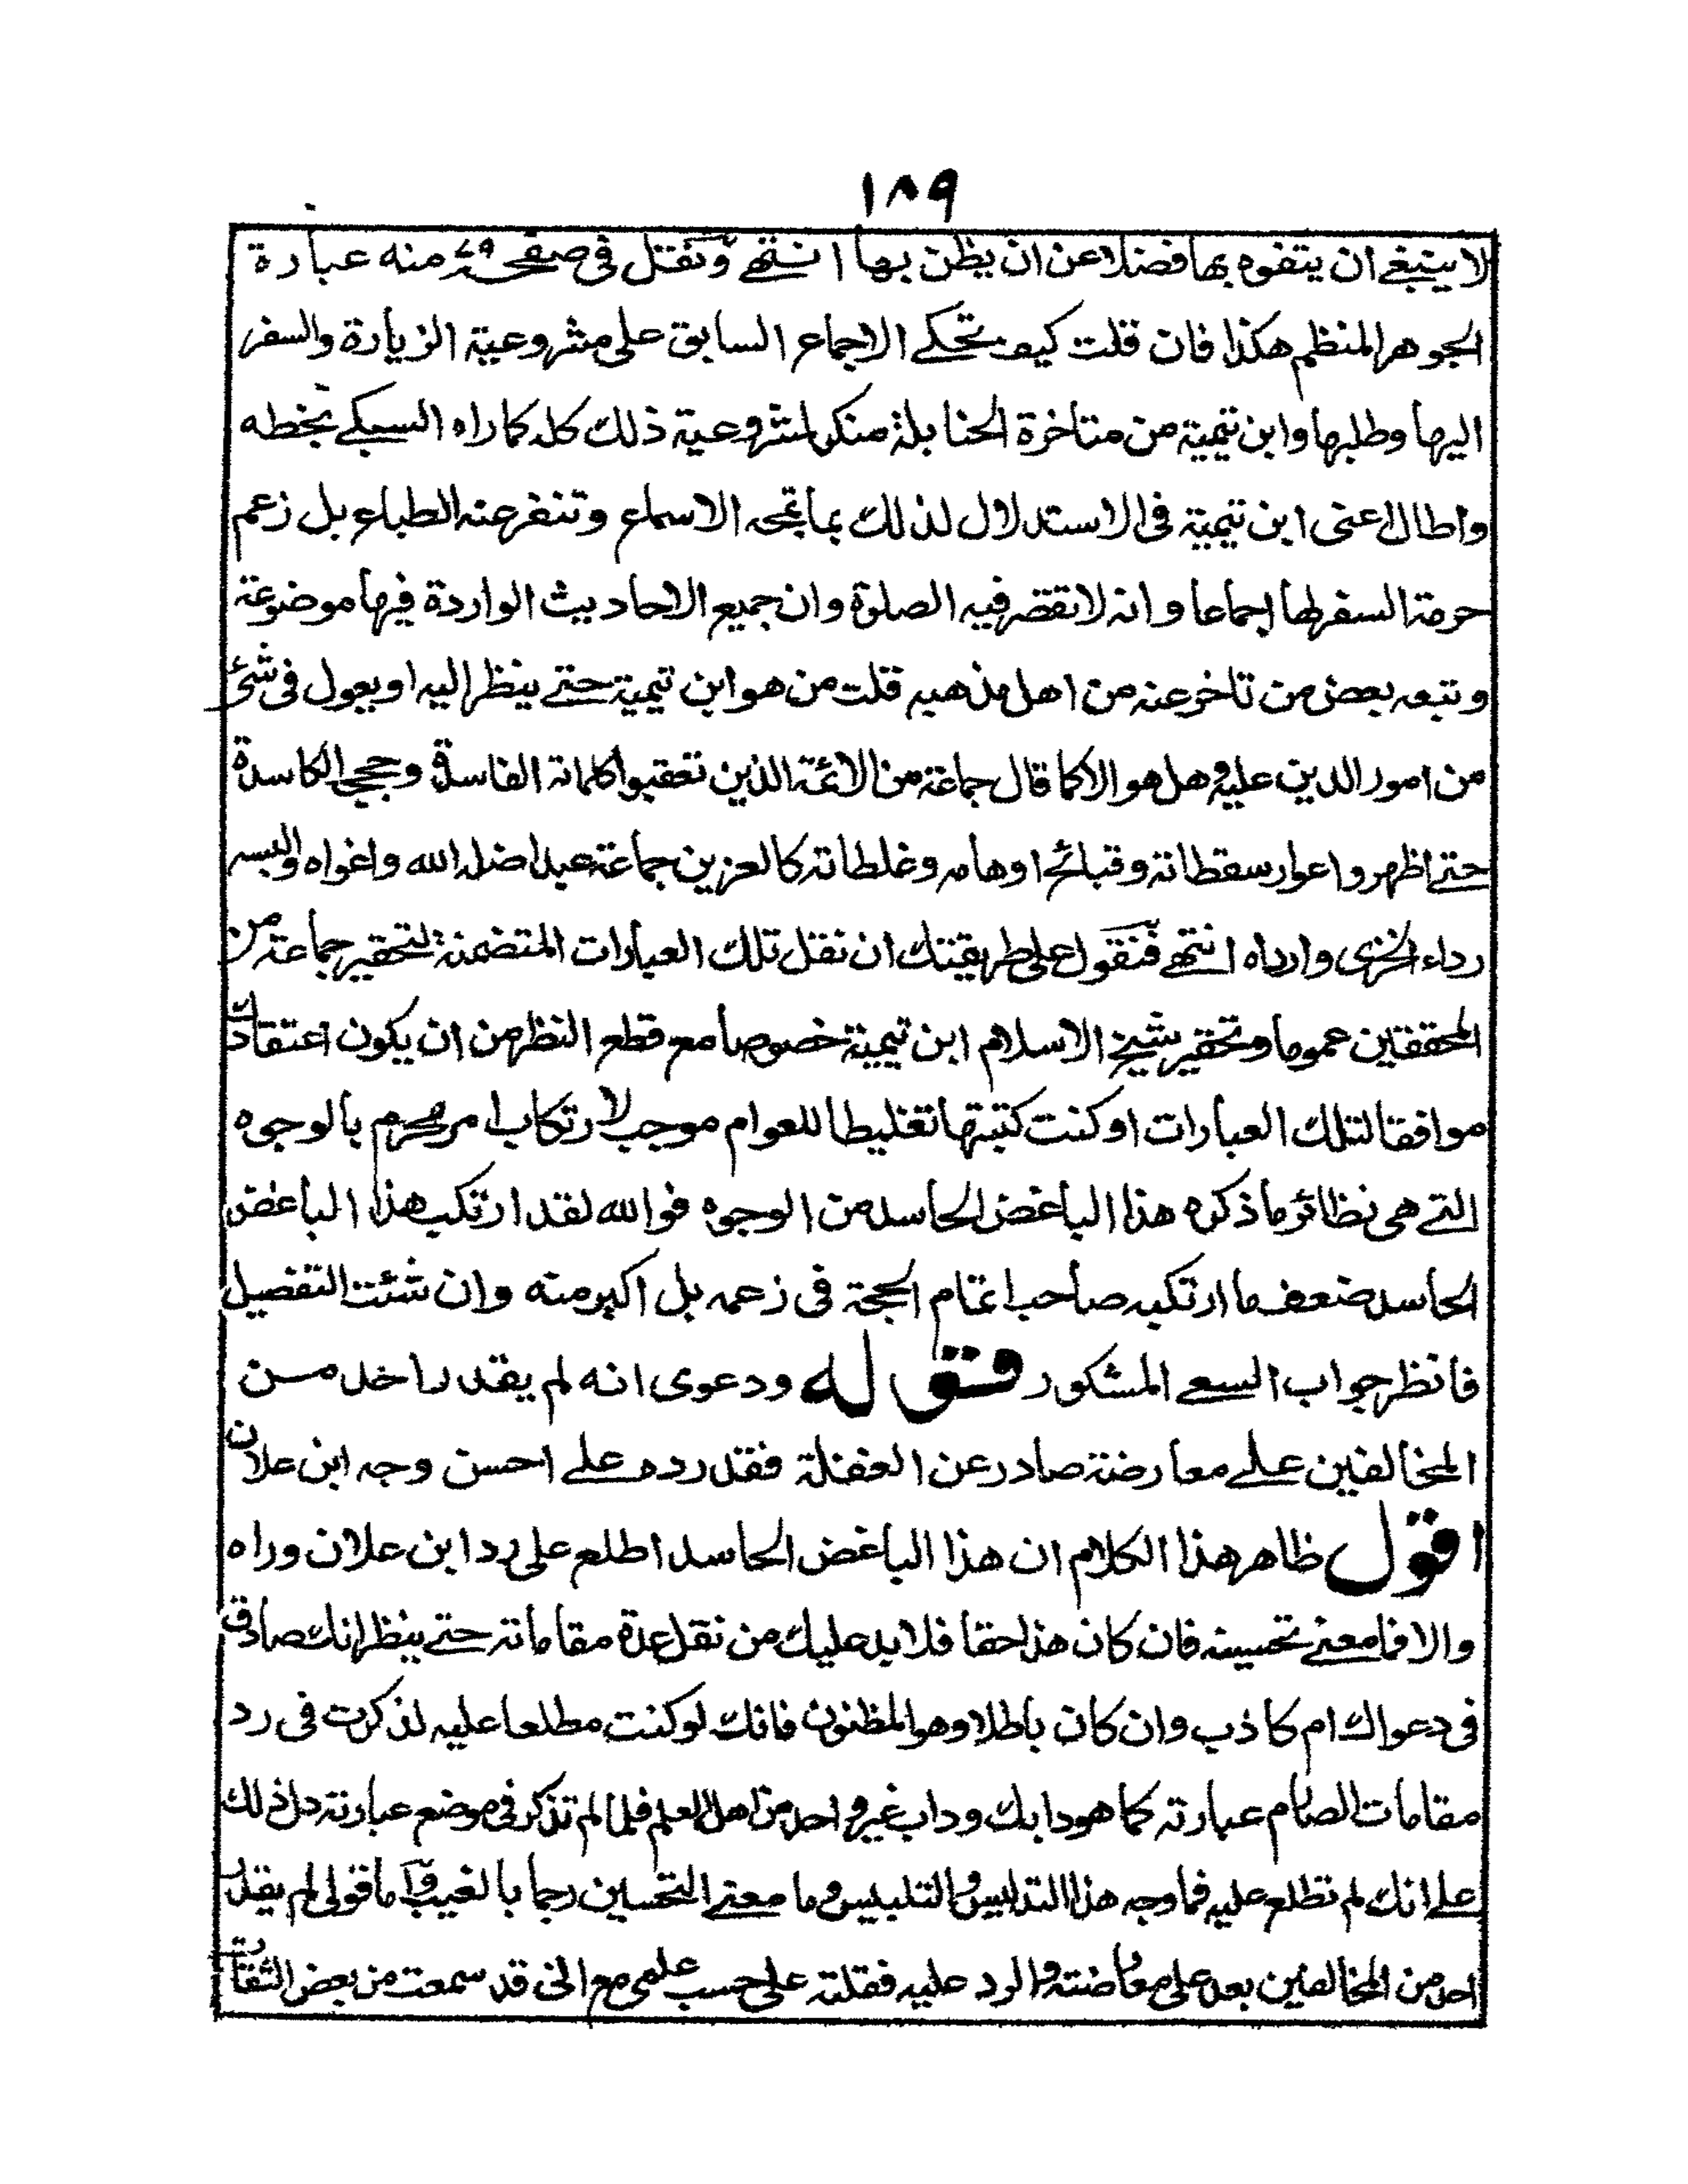 ١٨٩
لا ينبغے ان يتفوه بها فضلا عن ان يظن بها انتهے ونقل فى صفحه منه عبارة
الجوهر المنظم هكذا فان قلت كيف تحكے الاجماع السابق على مشروعية الزيارة والسفر
اليها وطلبها وابن تيمية من متاخرة الحنابلة منكر لمشروعية ذلك كله كما راه السبكے بخطه
واطال اعنى ابن تيمية فى الاستدلال لذلك بما تمجه الاسماع وتنفر عنه الطباع بل زعم
حرمة السفر لها اجماعا وانه لا تقصر فيه الصلوة وان جميع الاحاديث الواردة فيها موضوعة
وتبعه بعض من تاخر عنه من اهل مذهبه قلت من هو ابن تيمية حتے ينظر اليه او يعول فى شئ
من امور الدين عليه وهل هو الا كما قال جماعة من الائمة الذين تعقبوا كلماته الفاسدة وحججه الكاسدة
حتے اظهروا عوار سقطاته وقبائح اوهامه وغلطاته كالعز بن جماعة عبد اضله الله واغواه والبسه
رداء الخزى وارداه انتهے فنقول على طريقتك ان نقل تلك العبارات المتضمنة لتحقير جماعة من
المحققين عموما وتحقير شيخ الاسلام ابن تيمية خصوصا مع قطع النظر من ان يكون اعتقادك
موافقا لتلك العبارات او كنت كتبتها تغليطا للعوام موجب لارتكاب امر محرم بالوجوه
التے هى نظائر ما ذكره هذا الباغض الحاسد من الوجوه فوالله لقد ارتكب هذا الباغض
الحاسد ضعف ما ارتكبه صاحب اتمام الحجة فى زعمه بل اكبر منه وان شئت التفصيل
فانظر جواب السعے المشكور قوله ودعوى انه لم يقدر احد من
المخالفين علے معارضة صادر عن الغفلة فقد رده علے احسن وجه ابن علان
اقول ظاهر هذا الكلام ان هذا الباغض الحاسد اطلع على رد ابن علان وراه
والا فما معنے تحسينه فان كان هذا حقا فلابد عليك من نقل عدة مقاماته حتے ينظر انك صادق
فى دعواك ام كاذب وان كان باطلا وهو المظنون فانك لو كنت مطلعا عليه لذكرت فى رد
مقامات الصارم عبارته كما هو دابك وداب غير واحد من اهل العلم فلما لم تذكر فى موضع عبارته دل ذلك
علے انك لم تطلع عليه فما وجه هذا التدليس والتلبيس وما معنے التحسين رجما بالغيب واما قولى لم يقدر
احد من المخالفين بعد على معارضته والرد عليه فقلته على حسب علمى مع انى قد سمعت من بعض الثقات